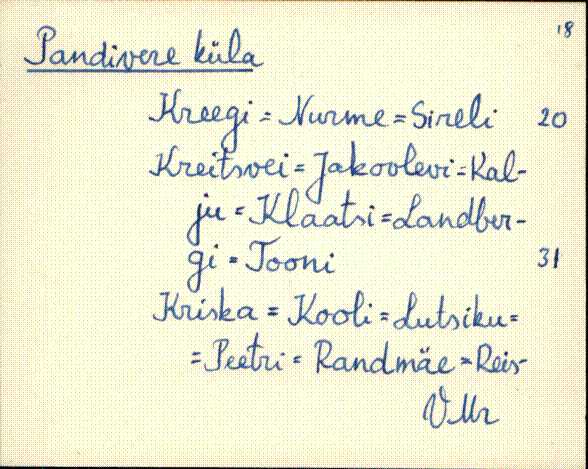 18
Pandivere küla
Kreegi = Nurme = Sireli 20
Kreitsvei = Jakoolevi = Kal-
ju = Klaatsi = Landber-
gi = Tooni 31
Kriska = Kooli = Lutsiku =
= Peetri = Randmäe = Reis-
VMr